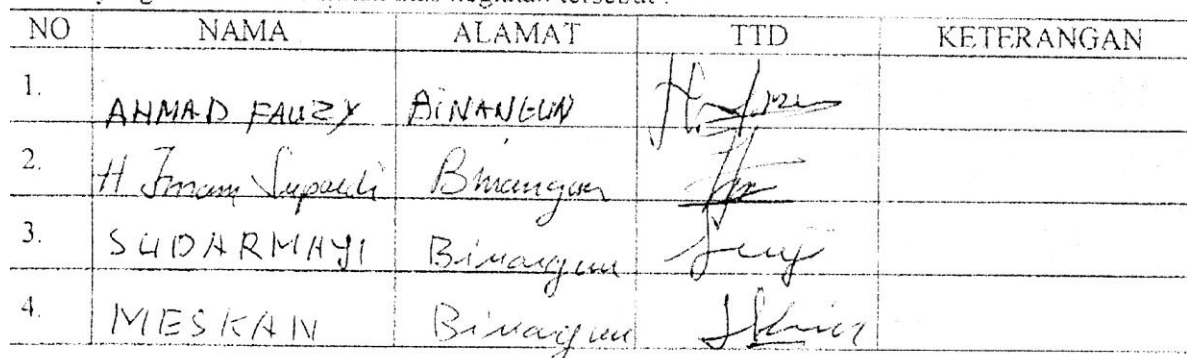 kegiatan tersebut :
NO NAMA ALAMAT TTD KETERANGAN
1. AHMAD FAUZY BINANGUN
2. H Imam Supardi Binangun
3. SUDARMAYI Binangun
4. MESKAN Binangun